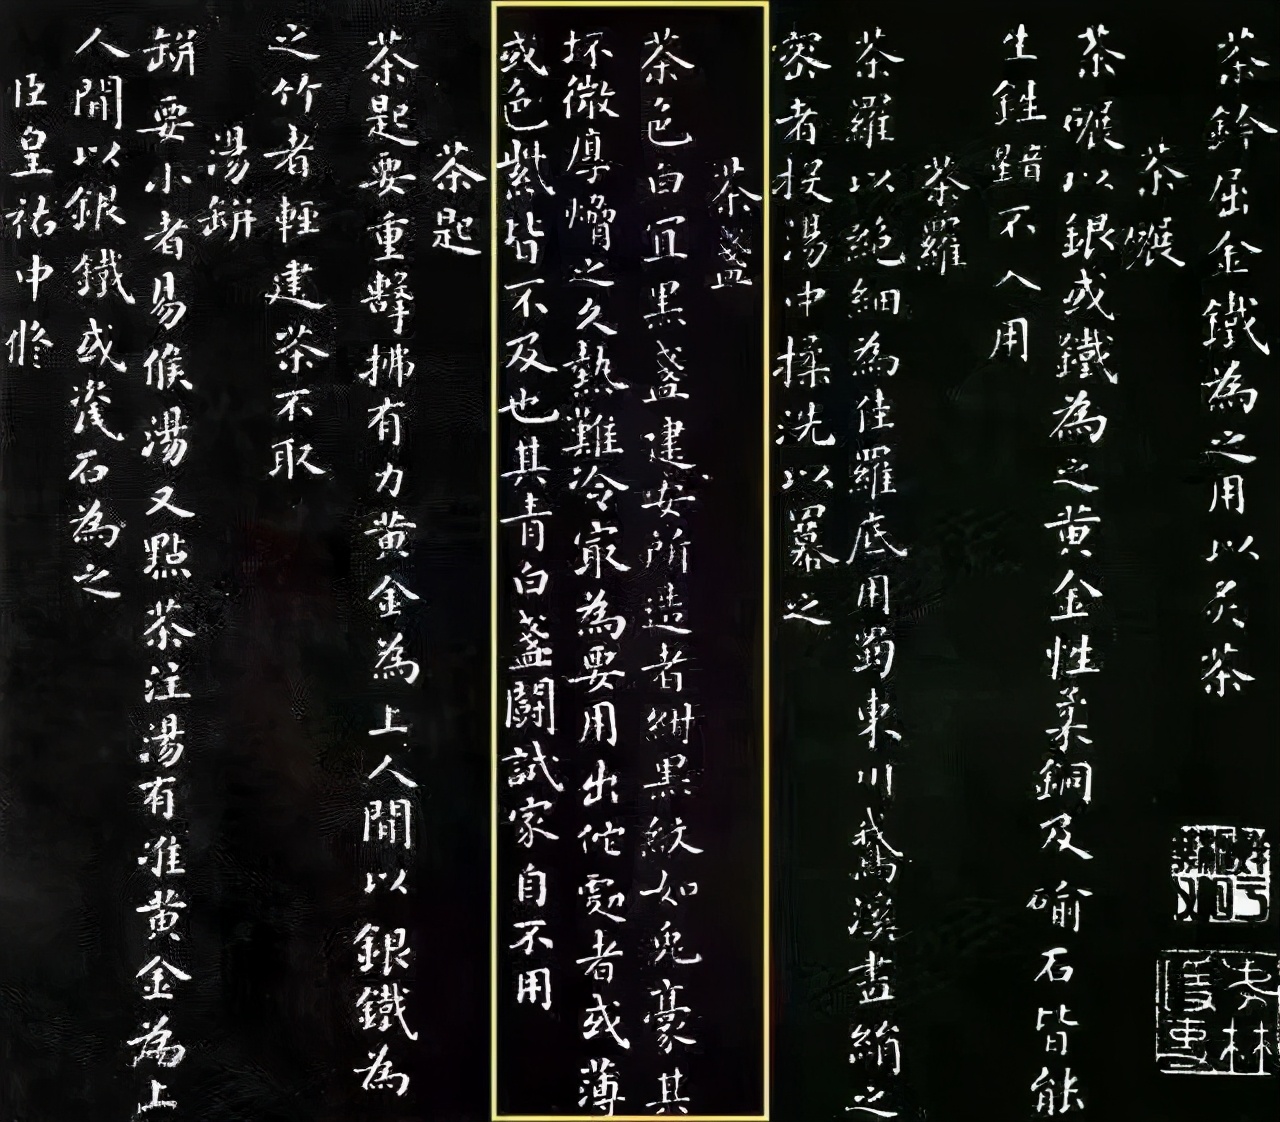 茶鈐屈金鐵為之用以炙茶
茶碾
茶碾以銀或鐵為之黄金性柔銅及鍮石皆能
生鉎音星不入用
茶羅
茶羅以絶細為佳羅底用蜀東川鵝溪畫絹之
密者投湯中揉洗以羃之
茶盞
茶色白宜黑盞建安所造者紺黑紋如兔毫其
坯微厚熁之久熱難冷最為要用出佗處者或薄
或色紫皆不及也其青白盞鬭試家自不用
茶匙
茶匙要重擊拂有力黄金為上人間以銀鐵為
之竹者輕建茶不取
湯缾
缾要小者易候湯又點茶注湯有准黄金為上
人間以銀鐵或瓷石為之
臣皇祐中脩